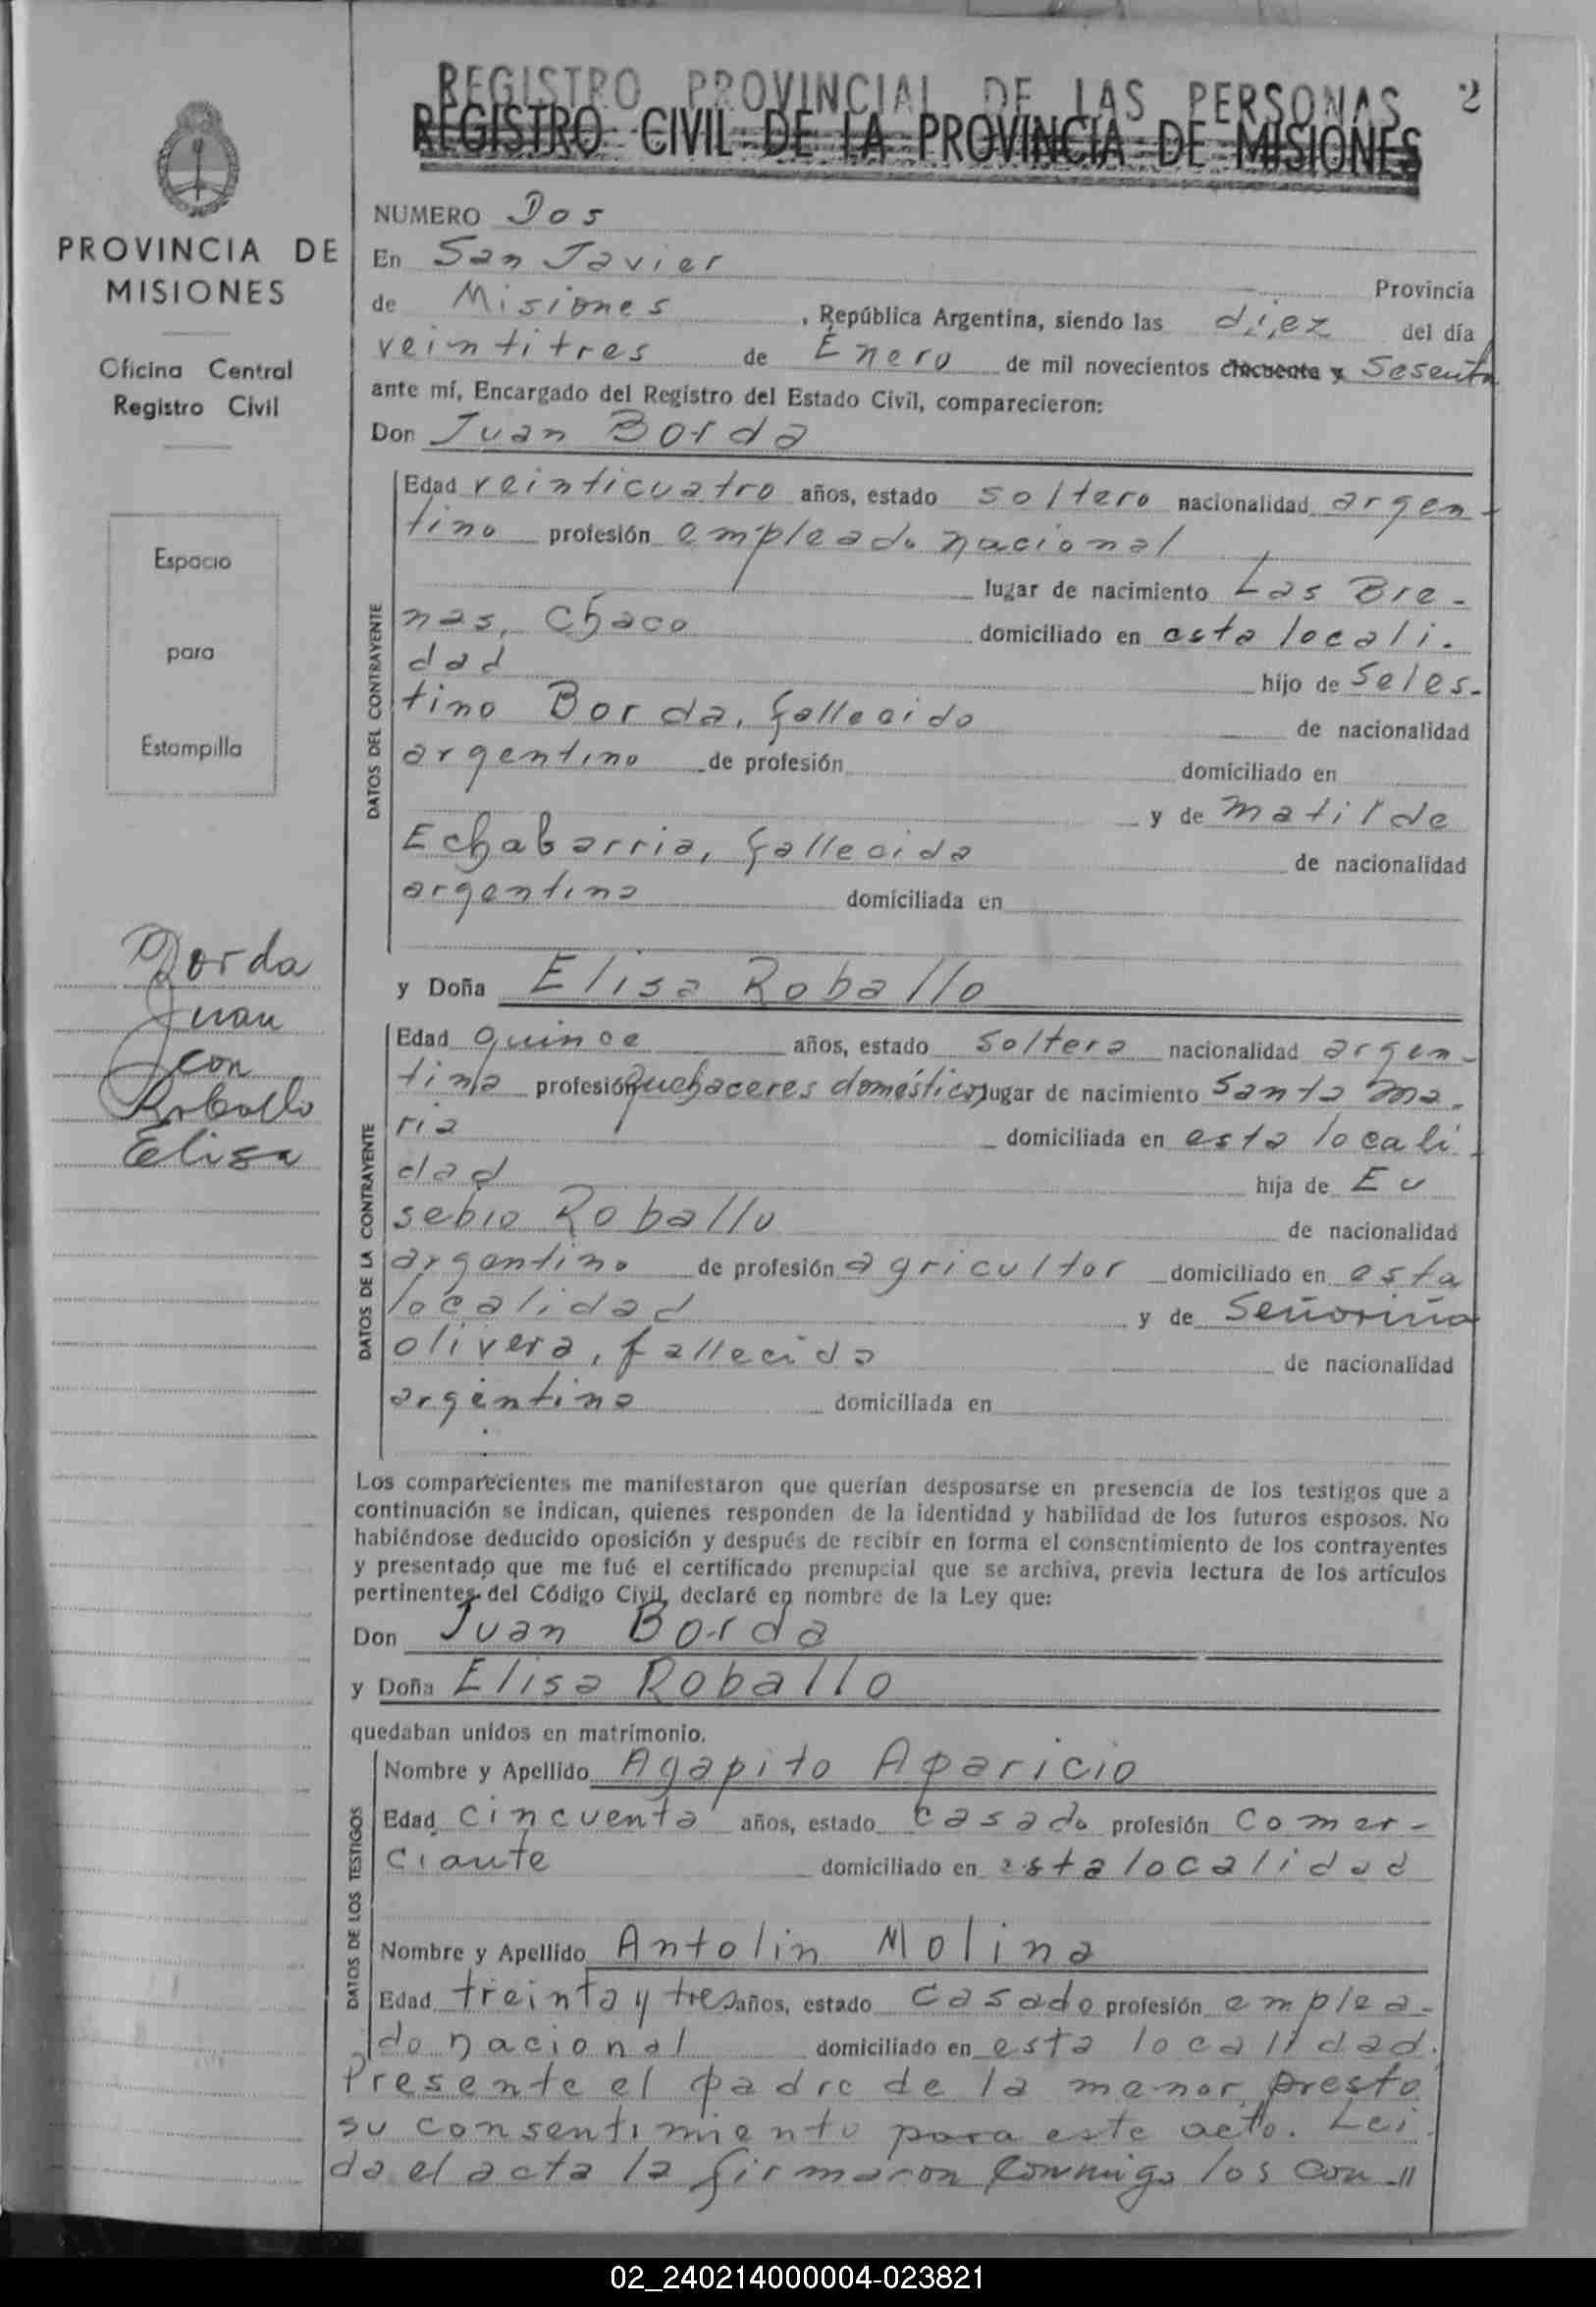 REGISTRO PROVINCIAL DE LAS PERSONAS 2
REGISTRO CIVIL DE LA PROVINCIA DE MISIONES
PROVINCIA DE
MISIONES
Oficina Central
Registro Civil
Espacio
para
Estampilla
Borda
Juan
con
Roballo
Elisa
NUMERO Dos
En San Javier
Provincia
de Misiones, República Argentina, siendo las diez del día
veintitres de Enero de mil novecientos cincuenta y Sesenta
ante mí, Encargado del Registro del Estado Civil, comparecieron:
Don Juan Borda
DATOS DEL CONTRAYENTE
Edad veinticuatro años, estado soltero nacionalidad argen-
tino profesión empleado nacional
lugar de nacimiento Las Bre-
nas, Chaco domiciliado en esta locali-
dad hijo de Seles-
tino Borda, fallecido de nacionalidad
argentino de profesión domiciliado en
y de Matilde
Echabarria, fallecida de nacionalidad
argentina domiciliada en
y Doña Elisa Roballo
DATOS DE LA CONTRAYENTE
Edad quince años, estado soltera nacionalidad argen-
tina profesión quehaceres domésticos lugar de nacimiento Santa Ma-
ria domiciliada en esta locali-
dad hija de Eu
sebio Roballo de nacionalidad
argentino de profesión agricultor domiciliado en esta
localidad y de Señoriña
olivera, fallecida de nacionalidad
argentina domiciliada en
Los comparecientes me manifestaron que querían desposarse en presencia de los testigos que a
continuación se indican, quienes responden de la identidad y habilidad de los futuros esposos. No
habiéndose deducido oposición y después de recibir en forma el consentimiento de los contrayentes
y presentado que me fué el certificado prenupcial que se archiva, previa lectura de los artículos
pertinentes del Código Civil, declaré en nombre de la Ley que:
Don Juan Borda
y Doña Elisa Roballo
quedaban unidos en matrimonio.
DATOS DE LOS TESTIGOS
Nombre y Apellido Agapito Aparicio
Edad cincuenta años, estado casado profesión Comer-
ciante domiciliado en esta localidad
Nombre y Apellido Antolin Molina
Edad treinta y tres años, estado casado profesión emplea-
do nacional domiciliado en esta localidad.
Presente el padre de la menor presto
su consentimiento para este acto. Lei-
da el acta la firmaron conmigo los con //
02_240214000004-023821